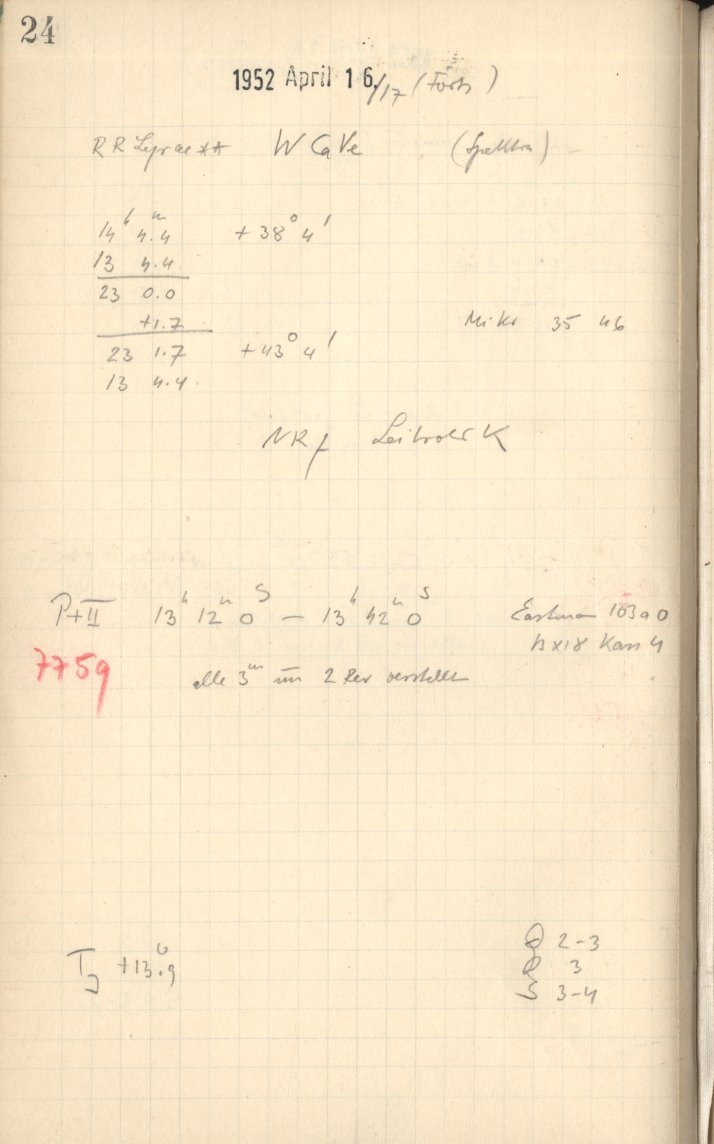 24
1952 April 16/17 (Forts)
RR Lyrae ** W CaVe (Spektra) –
14h 4.4m +38° 4'
13 4.4
23 0.0
+1.7
Mikr 35 46
23 1.7 +43° 4'
13 4.4
NR f Leitrohr K
P+II 13h 12m 0s – 13h 42m 0s Eastman 103a0
13x18 Kass 4
7759
alle 3m um 2 Rev verstellt
TJ +13°.9
Q 2-3
R 3
S 3-4